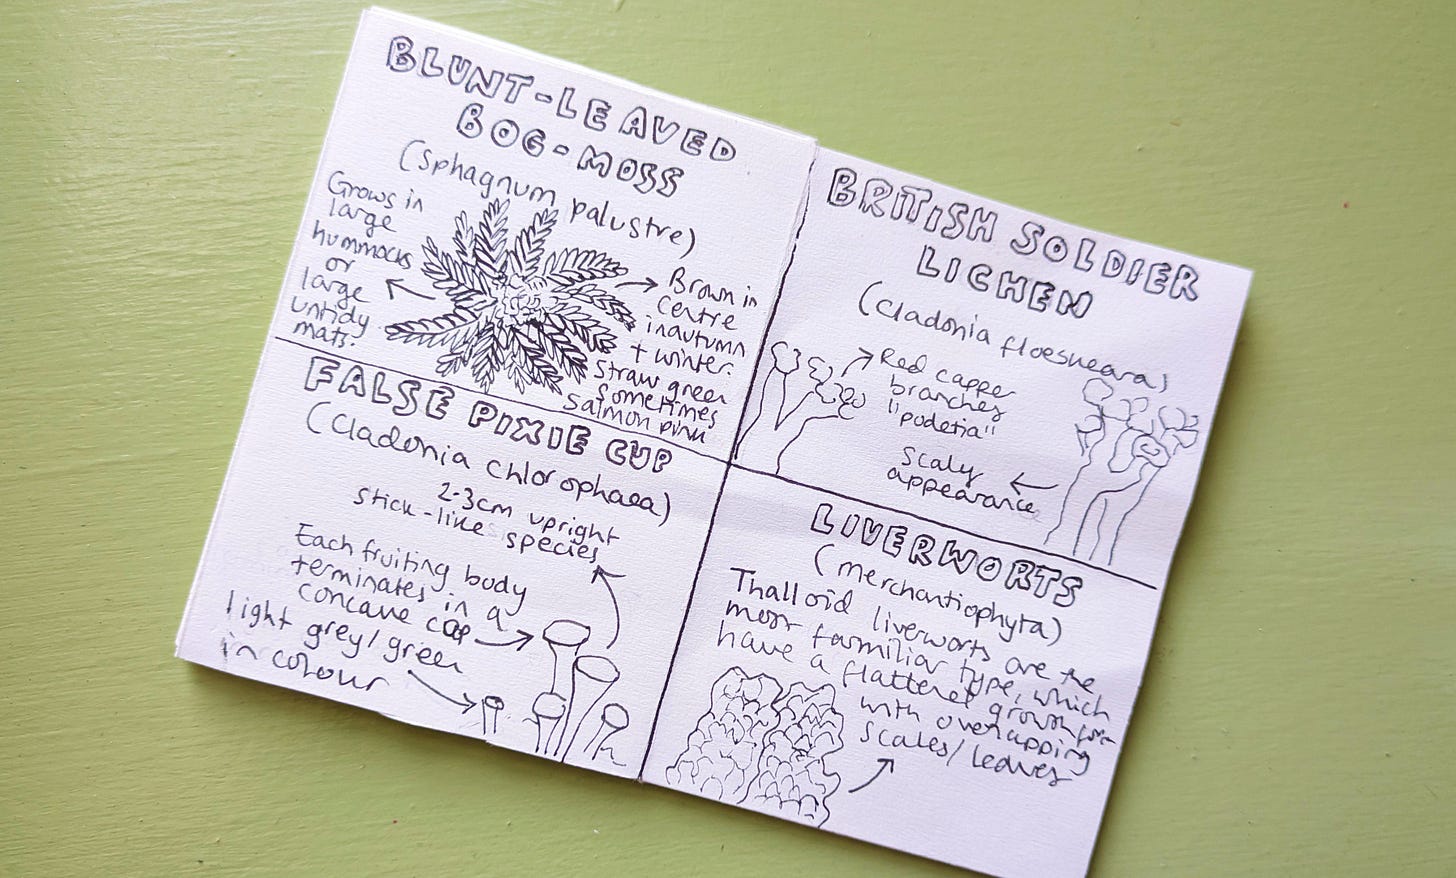 BLUNT-LEAVED
BOG-MOSS
(Sphagnum palustre)
Grows in
large
hummocks
or
large
untidy
mats.
Brown in
centre
in autumn
+ winter.
Straw green
sometimes
salmon pink
FALSE PIXIE CUP
(Cladonia chlorophaea)
2-3cm upright
stick-like species
Each fruiting body
terminates in a
concave cup
light grey/green
in colour
BRITISH SOLDIER
LICHEN
(Cladonia
Red capped
branches
"podetia"
Scaly
appearance
LIVERWORTS
(merchantiophyta)
Thalloid liverworts are the
most farmiliar type, which
have a flattened growth form
with overlapping
scales/leaves